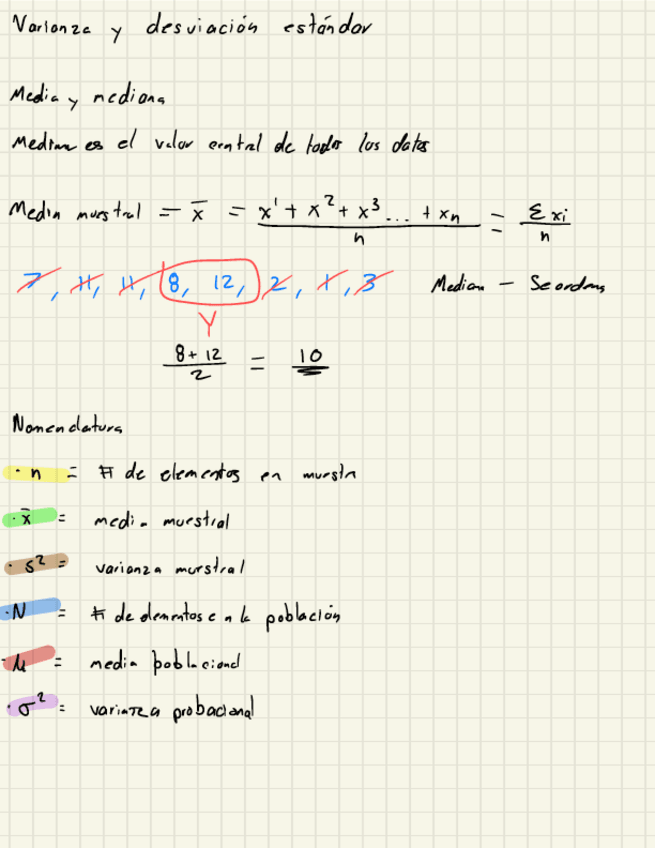 Varianza y desviación estándar
Media y mediana
Mediana es el valor central de todos los datos
Media muestral = x̄ = x¹ + x² + x³ ... + xn / n = Σxi / n
7, 11, 11, 8, 12, 2, 1, 3 Mediana - Se ordena
8 + 12 / 2 = 10
Nomenclatura
· n = # de elementos en muestra
· x̄ = media muestral
· s² = varianza muestral
· N = # de elementos en la población
· μ = media poblacional
· σ² = varianza probacional